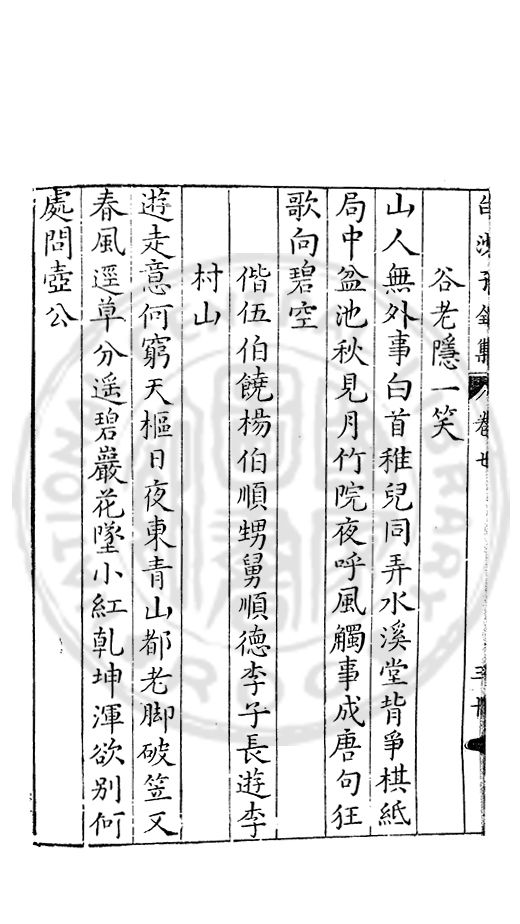 白沙子全集 卷七
谷老隱一笑
山人無外事白首稚兒同弄水溪堂背爭棋紙
局中盆池秋見月竹院夜呼風觸事成唐句狂
歌向碧空
偕伍伯饒楊伯順甥舅順德李子長遊李
村山
遊走意何窮天樞日夜東青山都老脚破笠又
春風逕草分遥碧巖花墜小紅乹坤渾欲别何
處問壺公